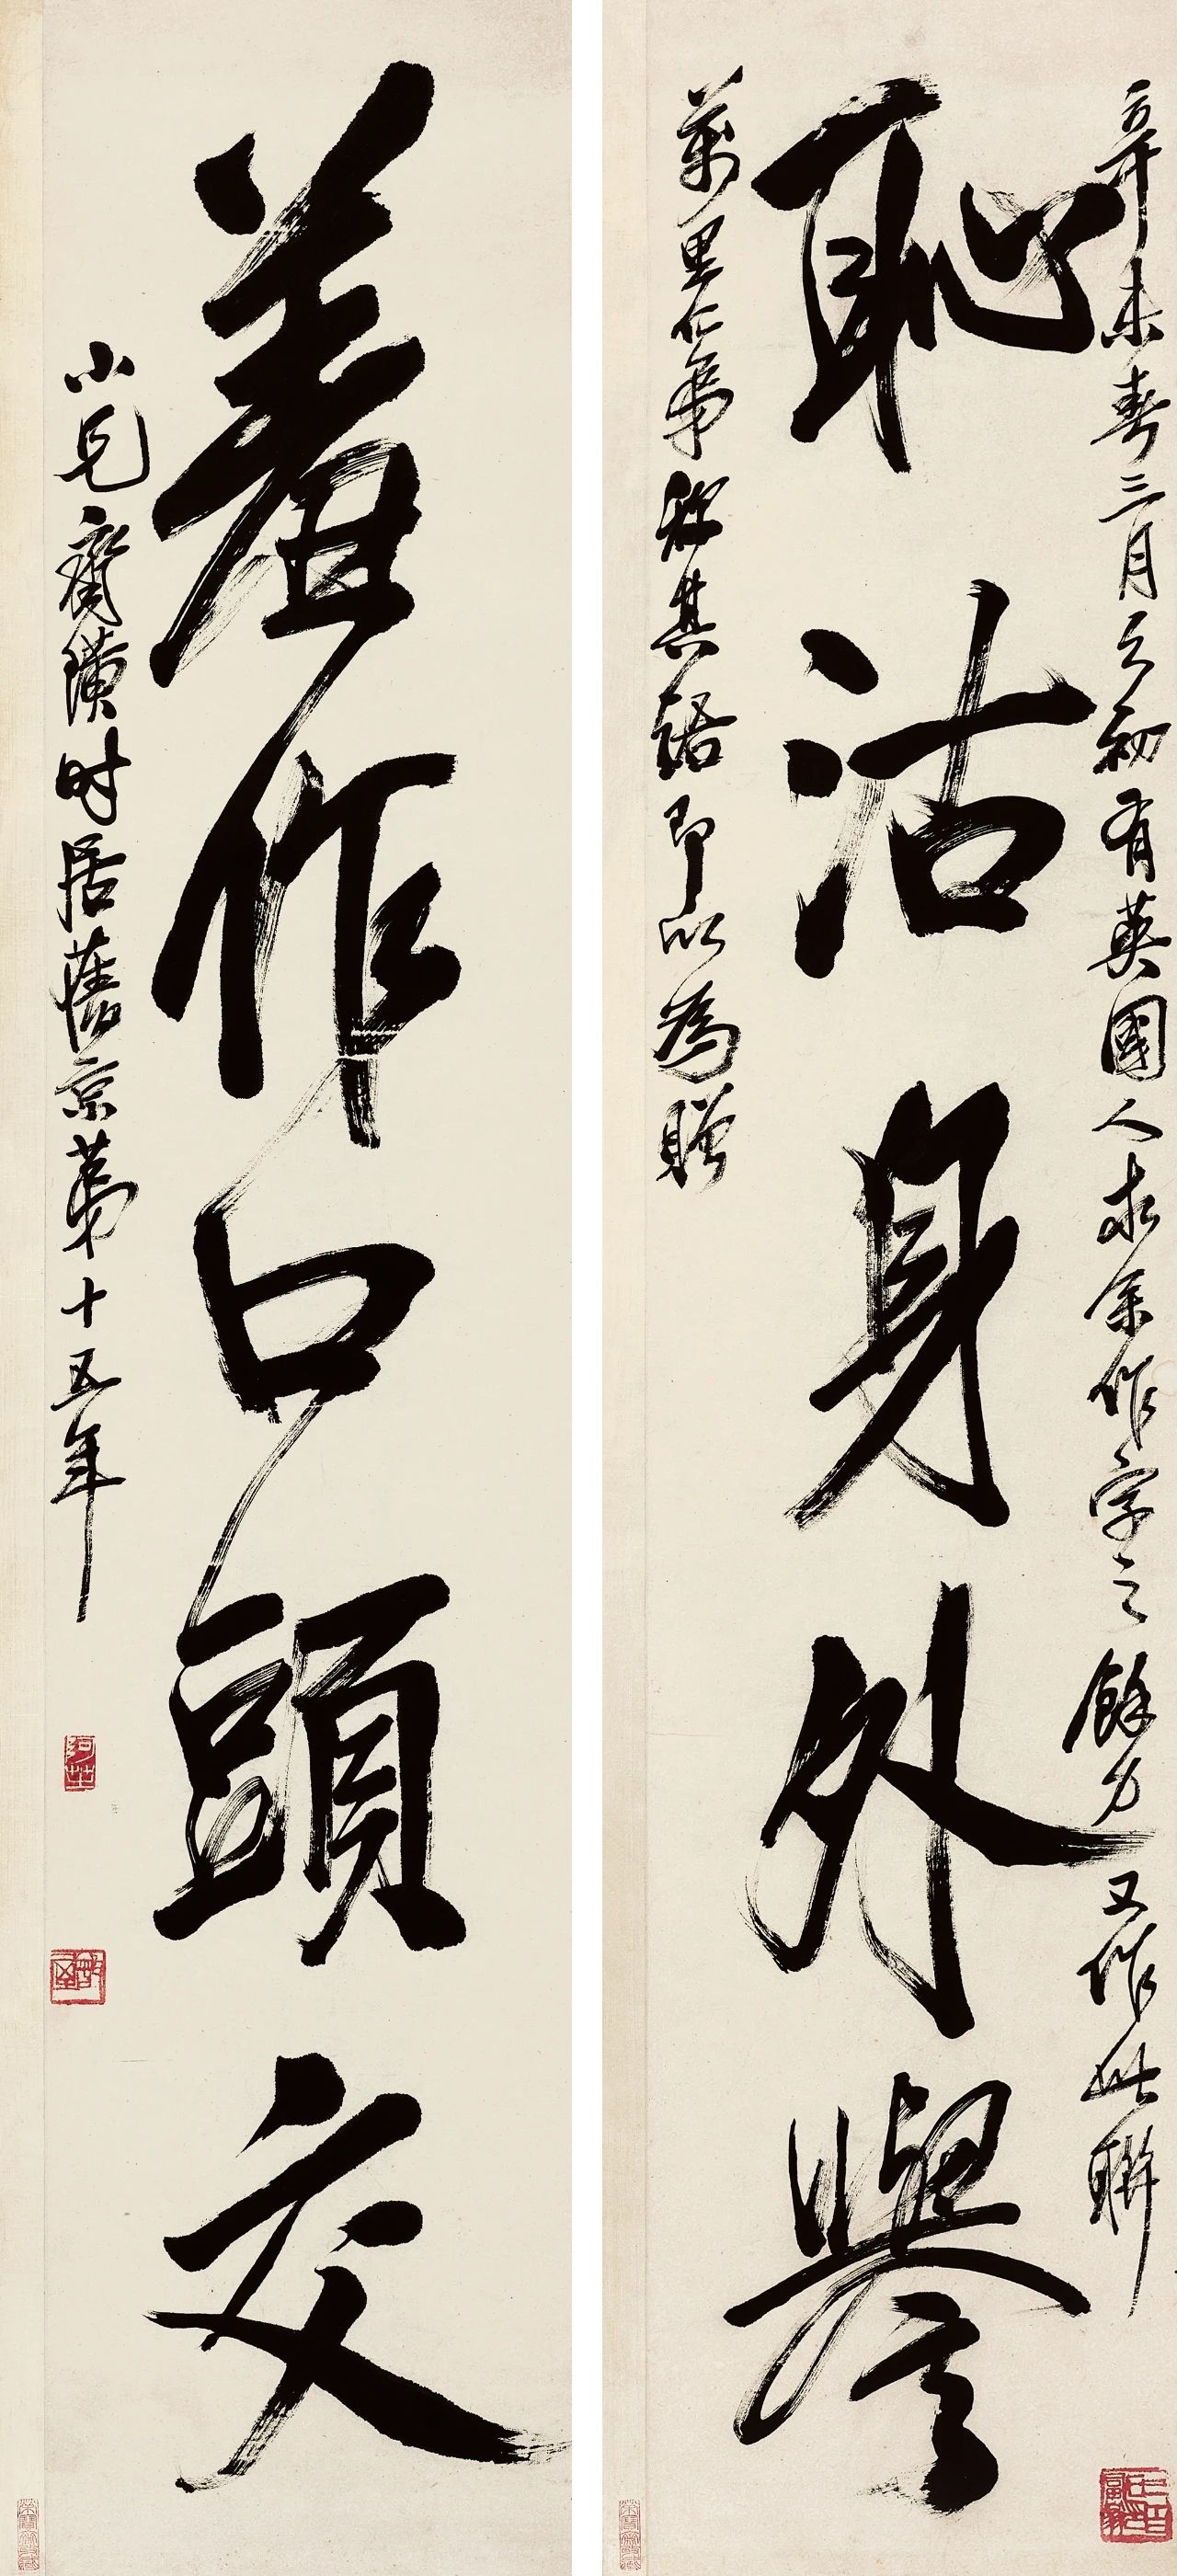 恥沽身外譽
辛未春三月之初有英國人求余作字之餘力又作此聯
萬里仁弟称其語即以為贈
羞作口頭交
小兄齊璜时居舊京第十五年
阿芝